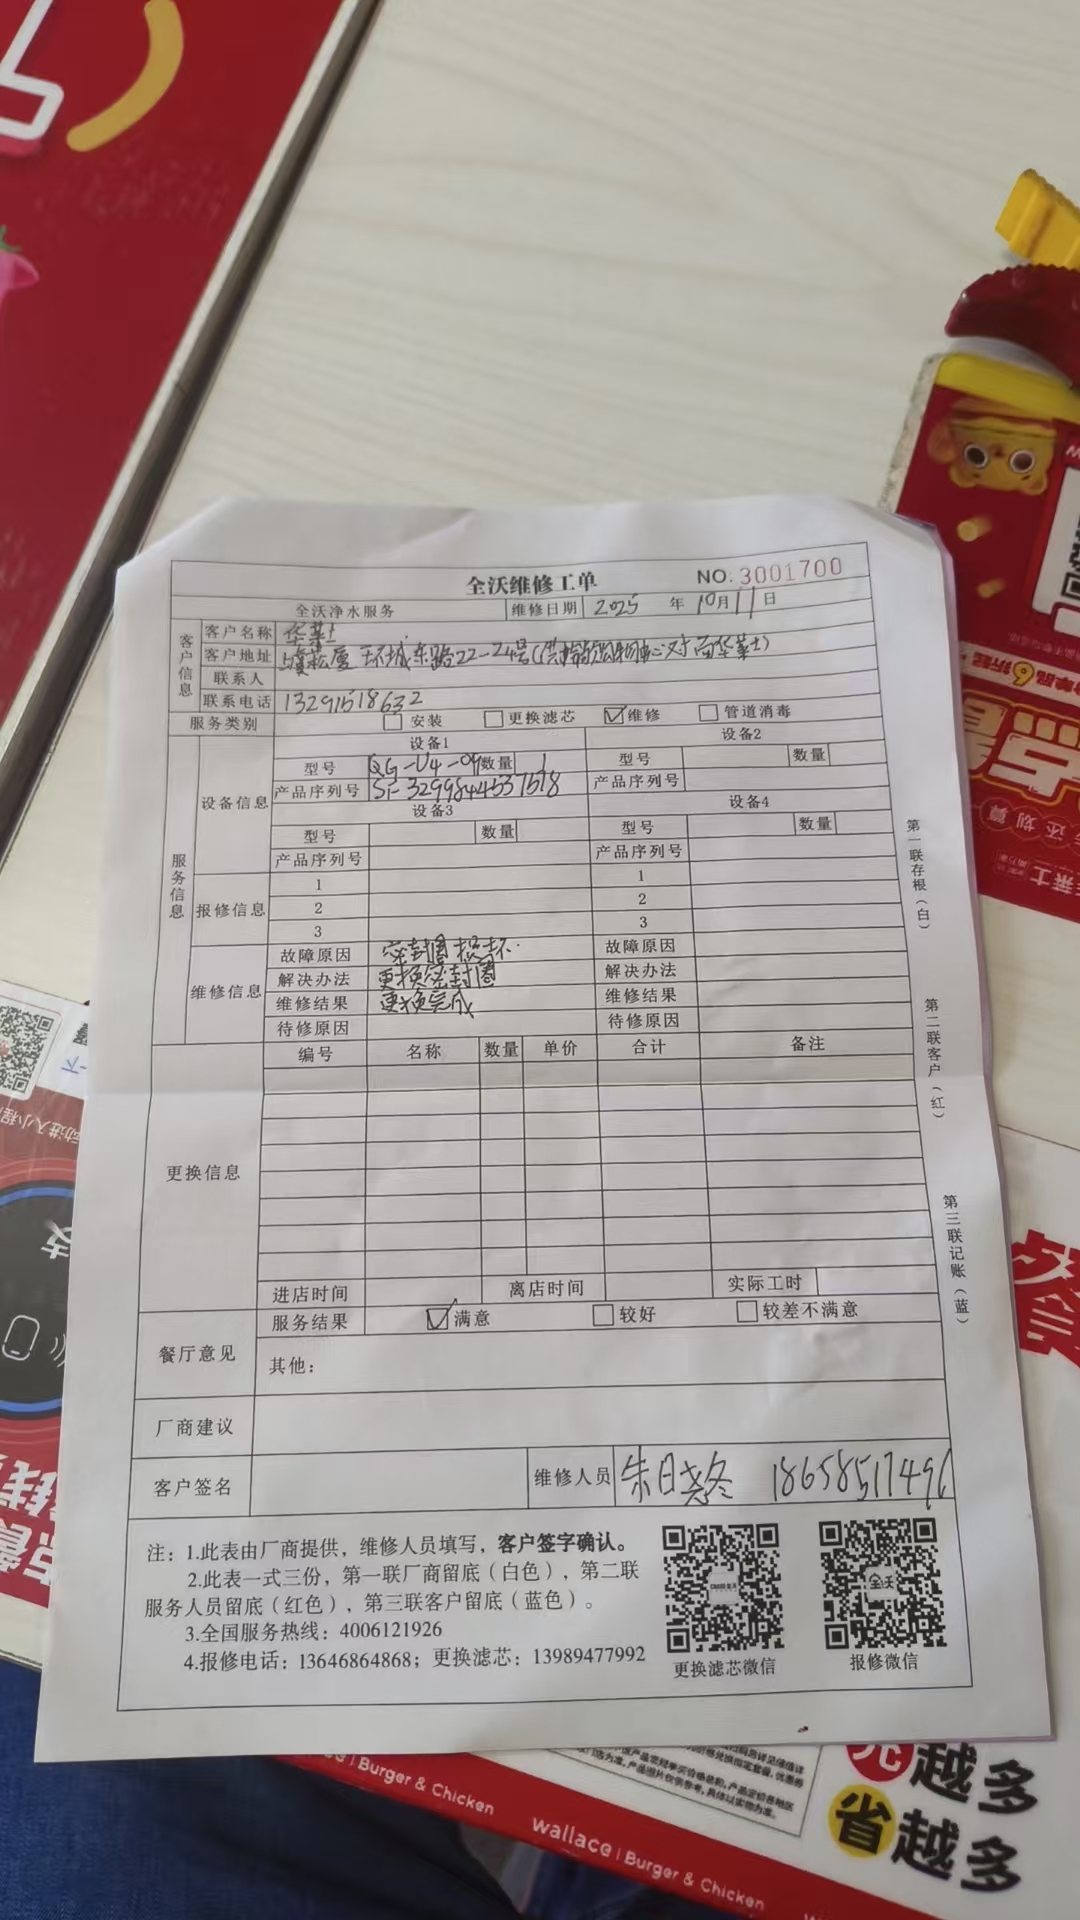 全沃维修工单
NO. 3001700
全沃净水服务 维修日期 2025 年 10月11日
客户信息
客户名称 华莱士
客户地址 环城东路22-24号(供销 购物中心对面华莱士)
联系人
联系电话 13291518632
服务类别 安装 更换滤芯 维修 管道消毒
服务信息
设备信息
设备1 设备2
型号 QG-U4-09 数量 1 型号 数量
产品序列号 SF3299844537518 产品序列号
设备3 设备4
型号 数量 型号 数量
产品序列号 产品序列号
报修信息
1 1
2 2
3 3
维修信息
故障原因 密封圈损坏. 故障原因
解决办法 更换密封圈 解决办法
维修结果 更换完成 维修结果
待修原因 待修原因
更换信息
编号 名称 数量 单价 合计 备注
进店时间 离店时间 实际工时
餐厅意见
服务结果 满意 较好 较差不满意
其他:
厂商建议
客户签名 维修人员 朱日尧冬 18658517496
注: 1.此表由厂商提供, 维修人员填写, 客户签字确认。
2.此表一式三份, 第一联厂商留底(白色), 第二联
服务人员留底(红色), 第三联客户留底(蓝色)。
3.全国服务热线: 4006121926
4.报修电话: 13646864868; 更换滤芯: 13989477992
更换滤芯微信 报修微信
第一联存根(白)
第二联客户(红)
第三联记账(蓝)
Burger & Chicken
wallace | Burger & Chicken
越多
省越多